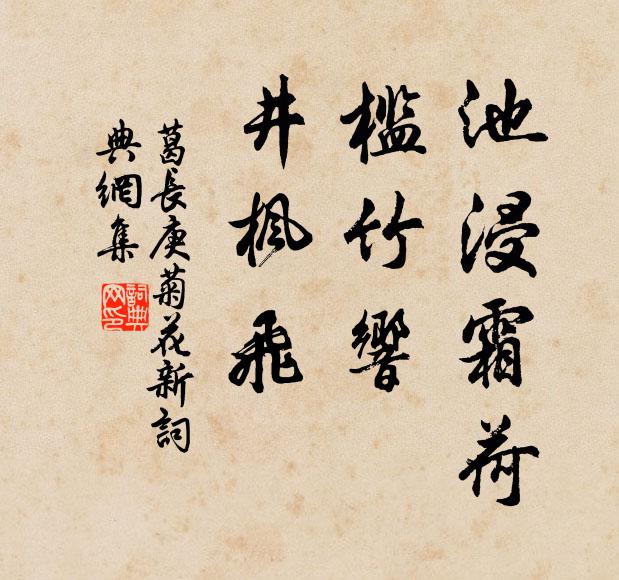 池浸霜荷
槛竹響
井楓飛
葛長庚菊花新詞
典網集
詞典网印